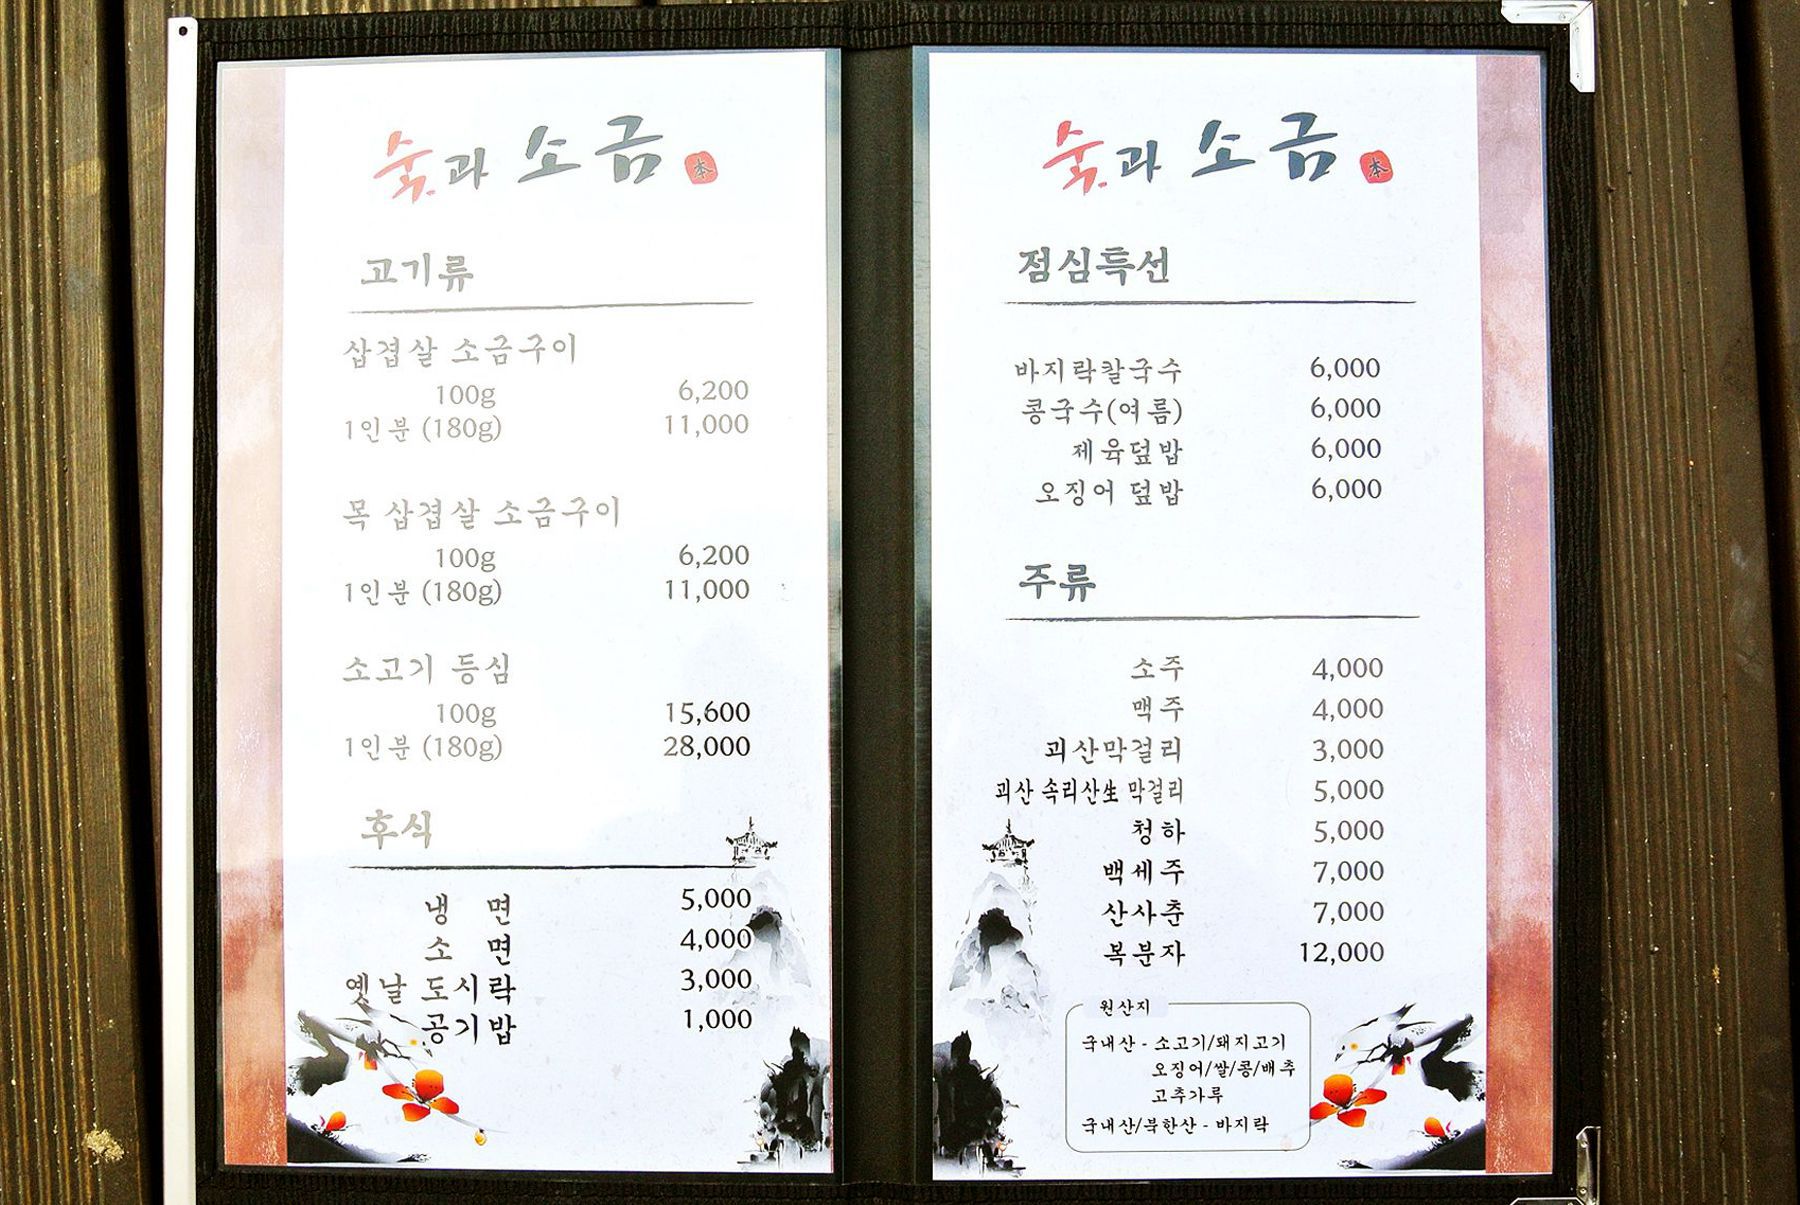 숯과 소금 本
고기류
삼겹살 소금구이
100g 6,200
1인분 (180g) 11,000
목 삼겹살 소금구이
100g 6,200
1인분 (180g) 11,000
소고기 등심
100g 15,600
1인분 (180g) 28,000
후식
냉 면 5,000
소 면 4,000
옛날 도시락 3,000
공기밥 1,000
숯과 소금 本
점심특선
바지락칼국수 6,000
콩국수(여름) 6,000
제육덮밥 6,000
오징어 덮밥 6,000
주류
소주 4,000
맥주 4,000
괴산막걸리 3,000
괴산 속리산生 막걸리 5,000
청하 5,000
백세주 7,000
산사춘 7,000
복분자 12,000
원산지
국내산 - 소고기/돼지고기
오징어/쌀/콩/배추
고추가루
국내산/북한산 - 바지락